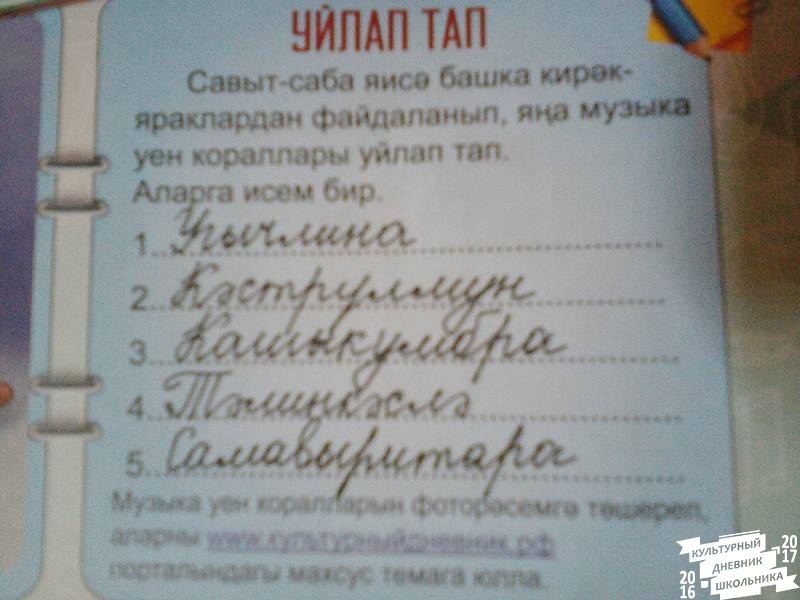 УЙЛАП ТАП
Савыт-саба яисә башка кирәк-
яраклардан файдаланып, яңа музыка
уен кораллары уйлап тап.
Аларга исем бир.
1. Урычлина
2. Кәструллмун
3. Кашыкумбра
4. Тәлинкәслә
5. Самавыритара
Музыка уен коралларын фоторәсемгә төшереп,
аларны www.культурныйдневник.рф
порталындагы махсус темага юлла.
КУЛЬТУРНЫЙ
ДНЕВНИК
ШКОЛЬНИКА
2016
2017